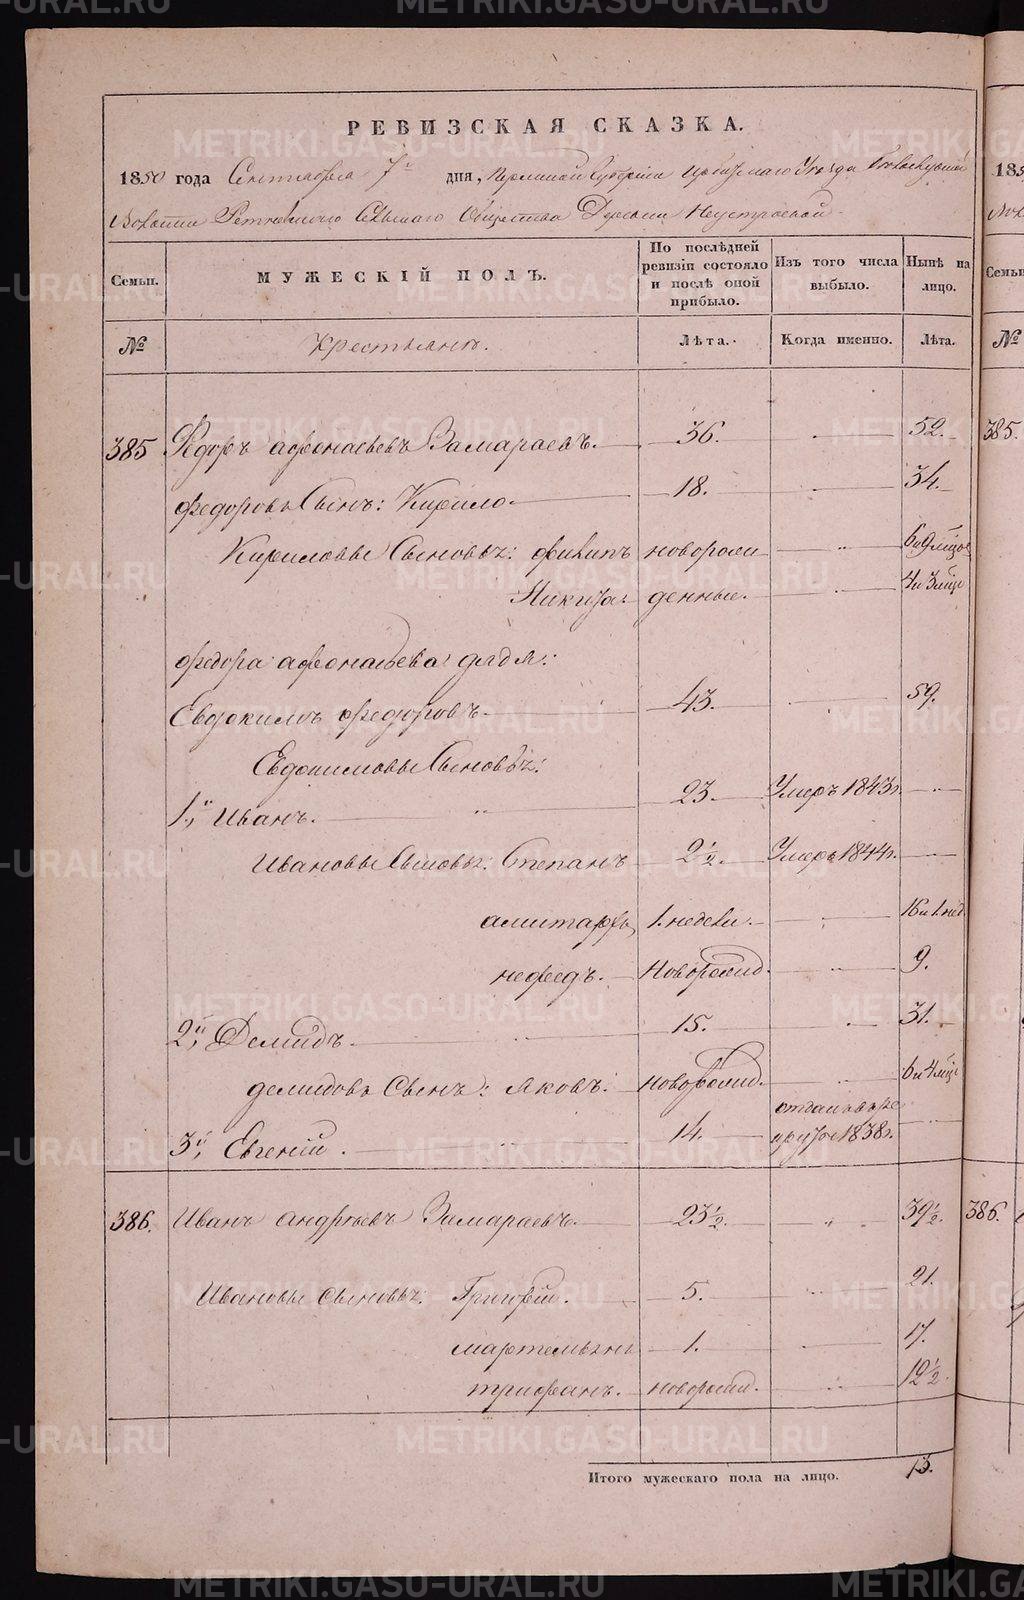 РЕВИЗСКАЯ СКАЗКА.
1850 года Сентября 7го дня, Пермской Губернии Ирбитскаго Уѣзда
Волости Сельскаго Общества Деревни Неустроевой
Семьи. МУЖЕСКІЙ ПОЛЪ. По послѣдней ревизіи состояло и послѣ оной прибыло. Изъ того числа выбыло. Нынѣ на лицо.
№ Крестьянъ. Лѣта. Когда именно. Лѣта.
385 Федоръ афонасьевъ Замараевъ. 36. 52.
федоровъ Сынъ: Кирило 18. 34.
Кириловы Сыновья: филипъ новорож 6 и 9 мцов
Никита денные. 4 и 3 мцъ
федора афонасьева дядя:
Евдокимъ федоровъ 43. 59.
Евдокимовы Сыновья:
1й Иванъ. 23. Умеръ 1843г.
Ивановы Сыновья: Степанъ 2½. Умеръ 1844г.
1. недели. 16 и 1. нед.
нефедъ. Новорожд. 9.
2й Демидъ. 15. 31.
демидовъ Сынъ: яковъ: новорожд. 6 и 4 мцъ
3й Евгеній. 14. отданъ въ ре
круты 1838г.
386. Иванъ андреевъ Замараевъ. 23½. 39½.
Ивановы сыновья: Григорій. 5. 21.
мартемьянъ 1. 17.
трифанъ. новорожд. 12½.
Итого мужескаго пола на лицо. 13.
385.
386.
№
METRIKI.GASO-URAL.RU